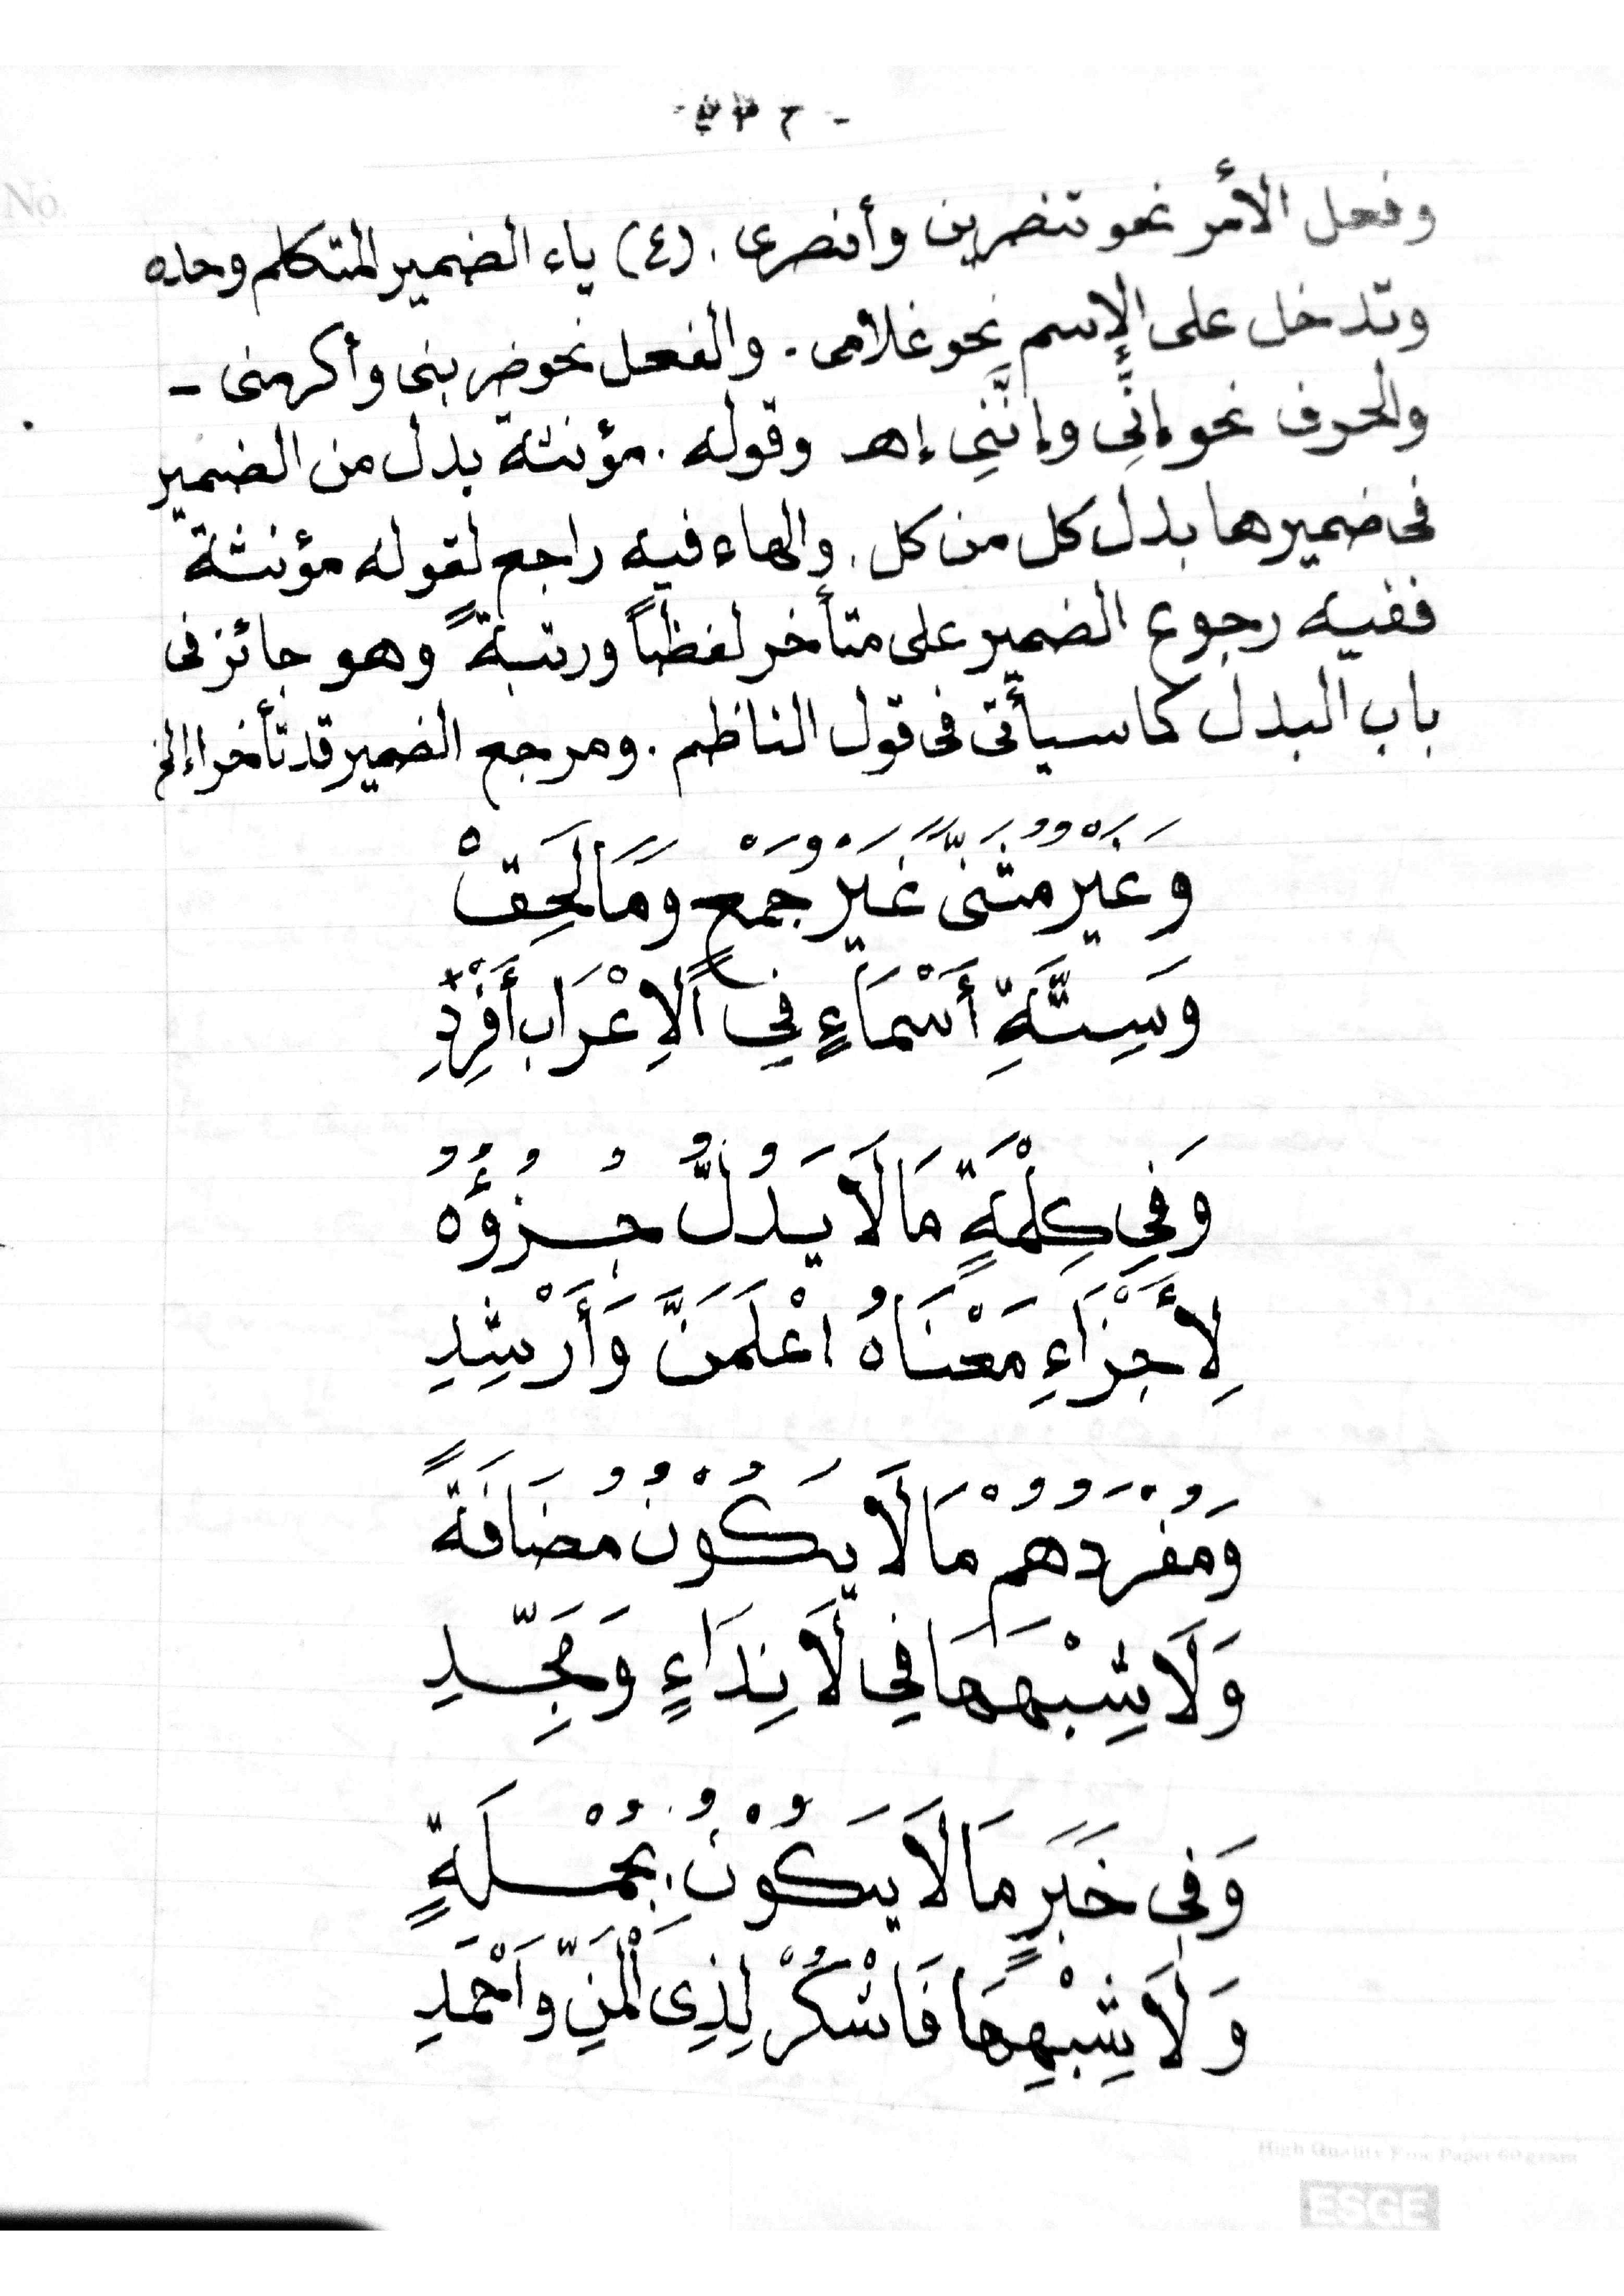 No.
وفعل الأمر نحو تنصرين وأنصرى . (٤) ياء الضمير المتكلم وحده
وتدخل على الإسم نحو غلامى . والفعل نحو ضربنى وأكرمنى -
والحرف نحو إنِّى وإنَّنِي إهـ وقوله . مؤنثة بدل من الضمير
فى ضميرها بدل كل من كل . والهاء فيه راجع لقوله مؤنثة
ففيه رجوع الضمير على متأخر لفظاً ورتبةً وهو جائز فى
باب البدل كما سيأتى فى قول الناظم . ومرجع الضمير قد تأخرا إلخ
وَغَيْرُ مُثَنًّى غَيْرُ جَمْعٍ وَمَا لَحِقْ
وَسِتَّةِ أَسْمَاءٍ فِي الْاِعْرَابِ أَفْرِدِ
وَفِي كِلْمَةٍ مَا لَا يَدُلُّ جُزُؤُهُ
لِأَجْزَاءِ مَعْنَاهُ اعْلَمَنَّ وَأَرْشِدِ
وَمُفْرَدُهُمْ مَا لَا يَكُوْنُ مُضَافَةً
وَلَا شِبْهَهَا فِي لَا نِدَاءٍ وَمَجِّدِ
وَفِى خَبَرٍ مَا لَا يَكُوْنُ بِجُمْلَةٍ
وَلَا شِبْهِهَا فَاشْكُرْ لِذِى الْمَنِّ وَاحْمَدِ
High Quality Fine Paper 60 gram
ESGE